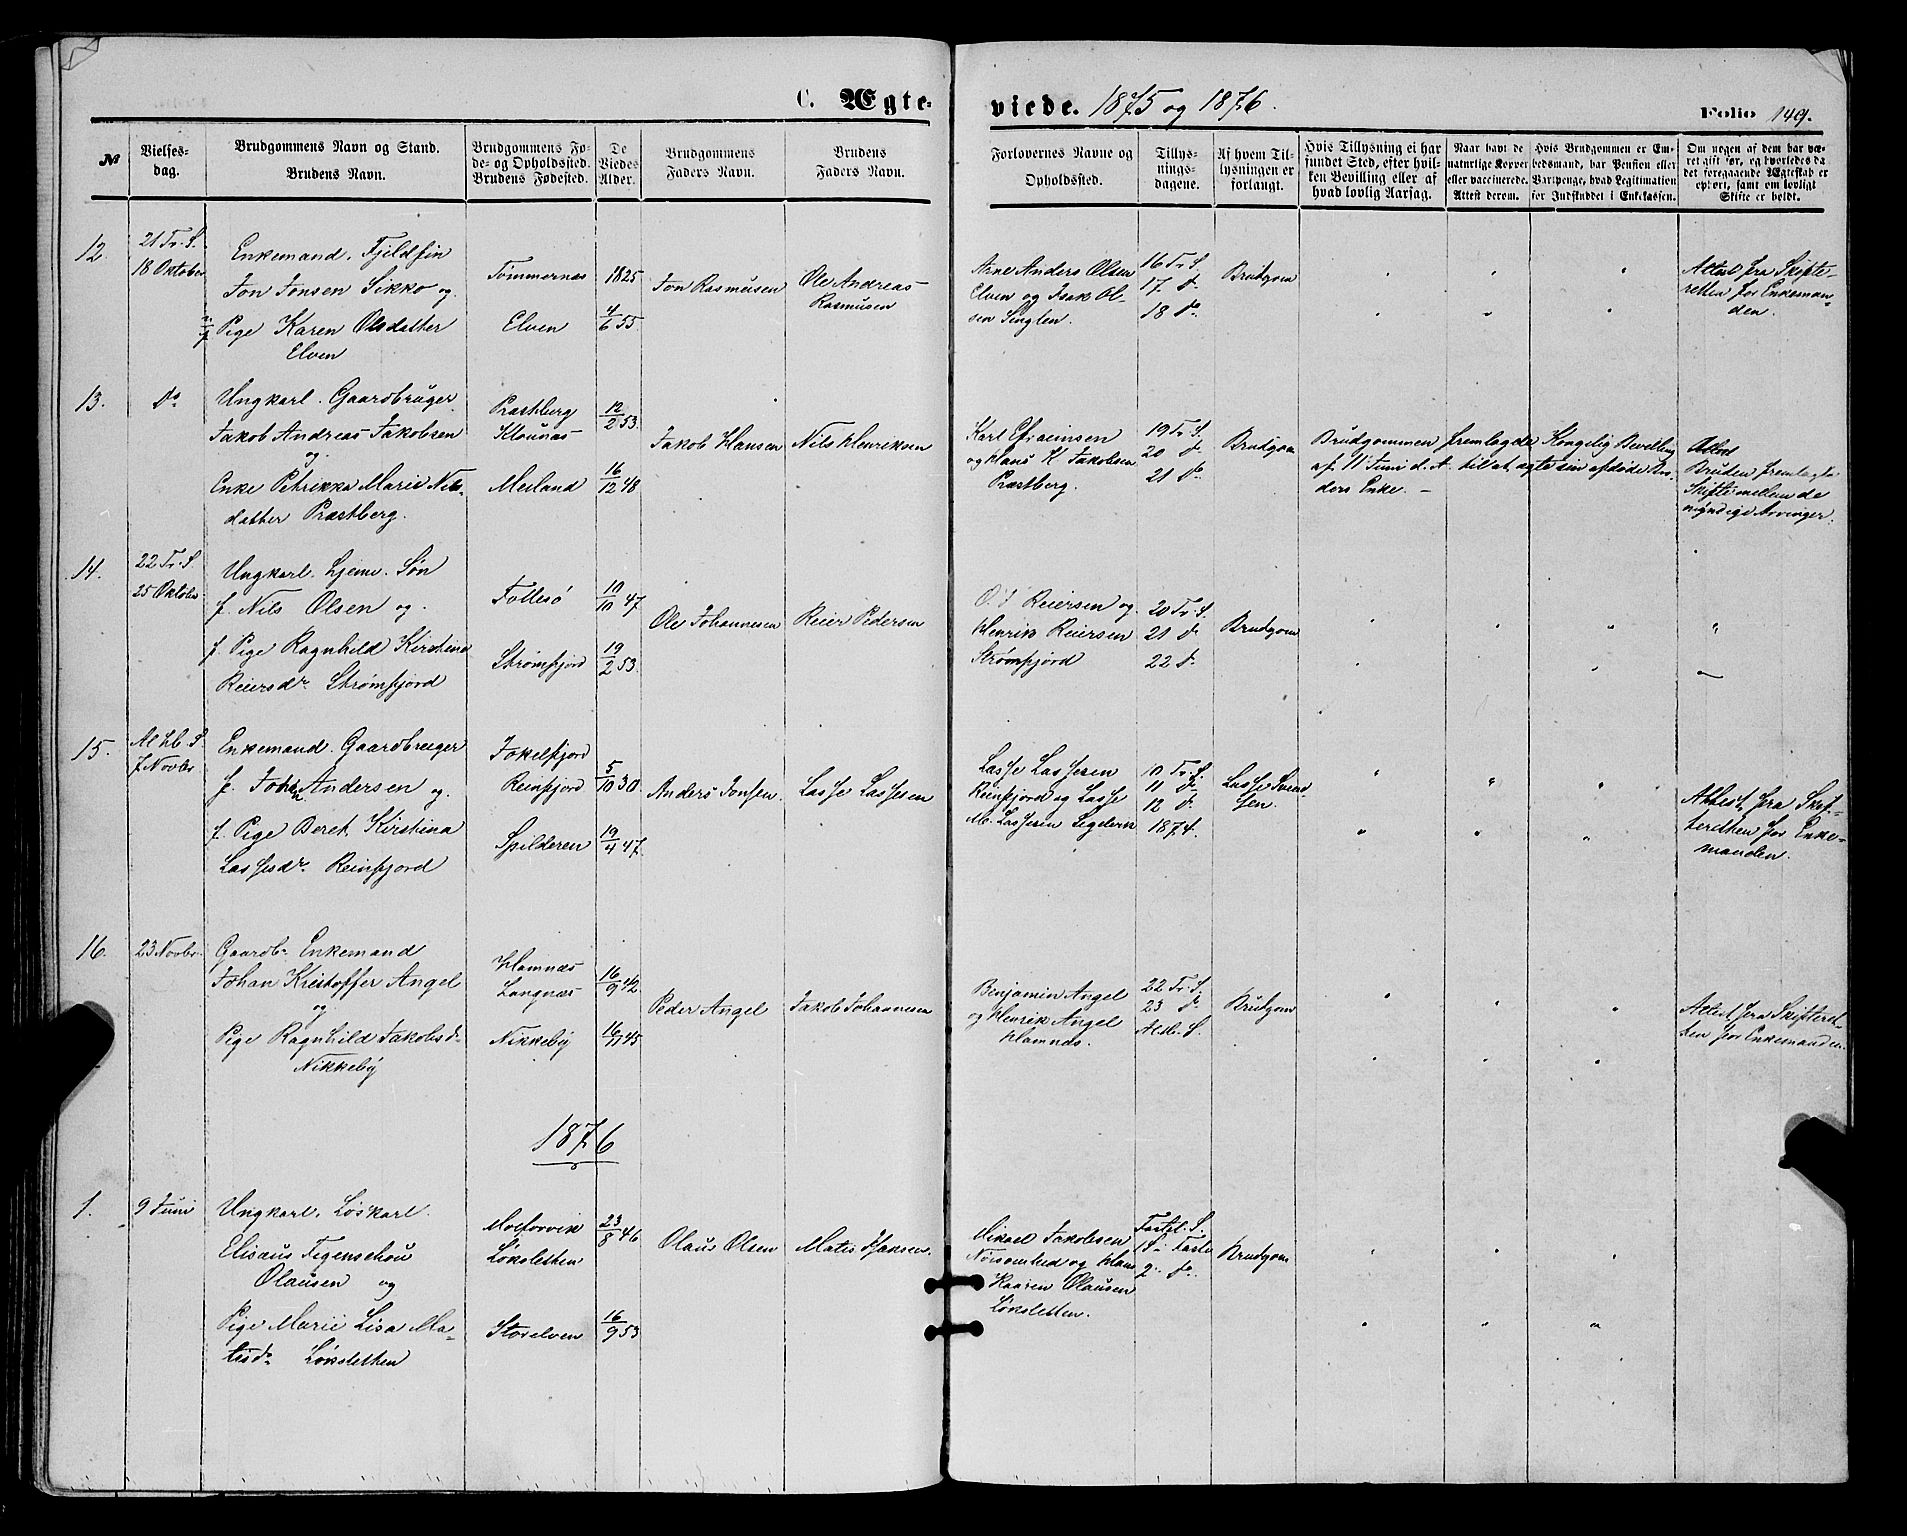 C. Ægte-
viede. 1875 og 1876.
Folio 149.
№
Vielses-
dag.
Brudgommens Navn og Stand.
Brudens Navn.
Brudgommens Fø-
de- og Opholdssted.
Brudens Fødested.
De
Viedes
Alder.
Brudgommens
Faders Navn.
Brudens
Faders Navn.
Forlovernes Navne og
Opholdssted.
Tillys-
nings-
dagene.
Af hvem Til-
lysningen er
forlangt.
Hvis Tillysning ei har
fundet Sted, efter hvil-
ken Bevilling eller af
hvad lovlig Aarsag.
Naar havt de
naturlige Kopper
eller vaccinerede.
Attest derom.
Hvis Brudgommen er Em-
bedsmand, har Pension eller
Vartpenge, hvad Legitimation
for Indskuddet i Enkekassen.
Om nogen af dem har væ-
ret gift før, og hvorledes da
det foregaaende Ægteskab er
ophørt, samt om lovligt
Skifte er holdt.
12.
21 Tr. S.
18 Oktober
Enkemand. Fjeldfin
Jon Jonsen Sikko og
Pige Karen Olsdatter
Elven
Tømmernæs
Elven
1825
4/6 55
Jon Rasmusen
Ole Andreas
Rasmusen
Arne Anders Olsen
Elven og Isak Ol-
sen Singlen.
16 Tr. S.
17 d
18 do
Brudgom
Attest fra Skifte-
retten for Enkeman-
den.
13.
do
Ungkarl. Gaardbruger
Jakob Andreas Jakobsen
og
Enke Petrikka Marie Nils-
datter Præstberg.
Præstberg
Klounæs
Meiland
12/2 53
16/12 48
Jakob Hansen
Nils Henriksen
Karl Efraimsen
og Hans K Jakobsen
Præstberg.
19 Tr. S.
20 d
21 do
Brudgom
Brudgommen fremlagde Kongelig Bevilling
af 11 Juni d. A. til at ægte sin afdøde Bro-
ders Enke. –
Bruden fremlagde
Skifte mellem de
myndige Arvinger.
14.
22 Tr. S
25 Oktober
Ungkarl. hjemv. Søn
f. Nils Olsen og
f. Pige Ragnhild Kirstina
Reiersdr Strømfjord
Follesø
Strømfjord
10/10 47
19/2 53
Ole Johannesen
Reier Pedersen
O. J Reiersen og
Henrik Reiersen
Strømfjord
20 Tr. S.
21 d
22 d
Brudgom
15.
Al hb. S.
7 Novbr
Enkemand. Gaardbruger
f. Johan Andersen og
f. Pige Beret Kirstina
Lassesdr Reinfjord
Jokelfjord
Reinfjord
Spilderen
5/10 30
19/4 47
Anders Jonsen.
Lasse Lassesen
Lasse Lassesen
Reinfjord og Lasse
M. Lassesen Segelvik
10 Tr. S.
11 d
12 d
1874.
Lasse Svend-
sen.
Attest fra Skif-
teretten for Enke-
manden.
16.
23 Novbr
Gaardbr Enkemand
Johan Kristoffer Angel
og
Pige Ragnhild Jakobsd.
Nikkeby
Hamnæs
Langnæs
Nikkeby
16/9 42
16/11 45
Peder Angel
Jakob Johannesen
Benjamin Angel
og Henrik Angel
Hamnæs.
22 Tr. S.
23 d
Al hb. S.
Brudgom
Attest fra Skifteret-
ten for Enkemanden.
1876
1.
9 Juni
Ungkarl. Løskarl.
Elisæus Tigenschou
Olausen og
Pige Marie Lisa Ma-
tisdr Løksletten
Løksletten
Storelven
23/8 46
16/9 53
Olaus Olsen
Matis Isaksen.
Mikael Jakobsen
og Hans
Kaaren Olausen
Løksletten.
Fastel. S.
1 S. i Faste
2. do.
Brudgom